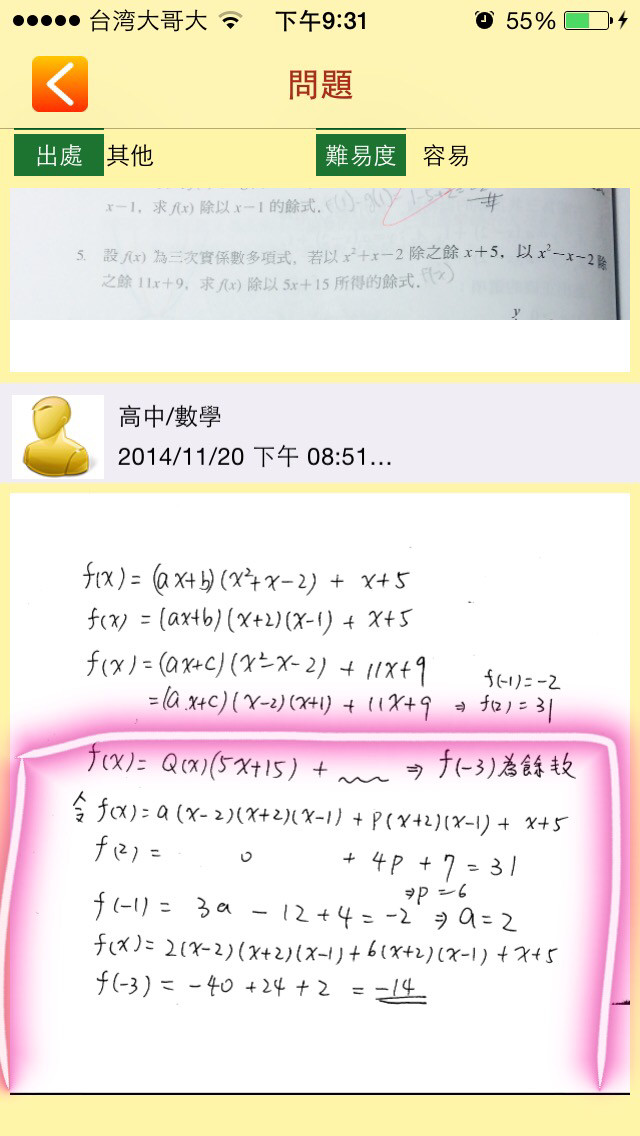 台湾大哥大 下午9:31 55%
問題
出處 其他 難易度 容易
x-1，求 f(x) 除以 x-1 的餘式.
5. 設 f(x) 為三次實係數多項式，若以 x²+x-2 除之餘 x+5，以 x²-x-2 除
之餘 11x+9，求 f(x) 除以 5x+15 所得的餘式. f(x)
y
高中/數學
2014/11/20 下午 08:51...
f(x) = (ax+b)(x²+x-2) + x+5
f(x) = (ax+b)(x+2)(x-1) + x+5
f(x) = (ax+c)(x²-x-2) + 11x+9 f(-1)=-2
=(ax+c)(x-2)(x+1) + 11x+9 ⇒ f(2)=31
f(x) = Q(x)(5x+15) + ﹏﹏ ⇒ f(-3)為餘數
令 f(x)=a(x-2)(x+2)(x-1)+p(x+2)(x-1)+x+5
f(2) = 0 + 4p + 7 = 31
⇒p=6
f(-1) = 3a - 12+4 = -2 ⇒ a=2
f(x)=2(x-2)(x+2)(x-1)+6(x+2)(x-1)+x+5
f(-3) = -40 +24 +2 = -14